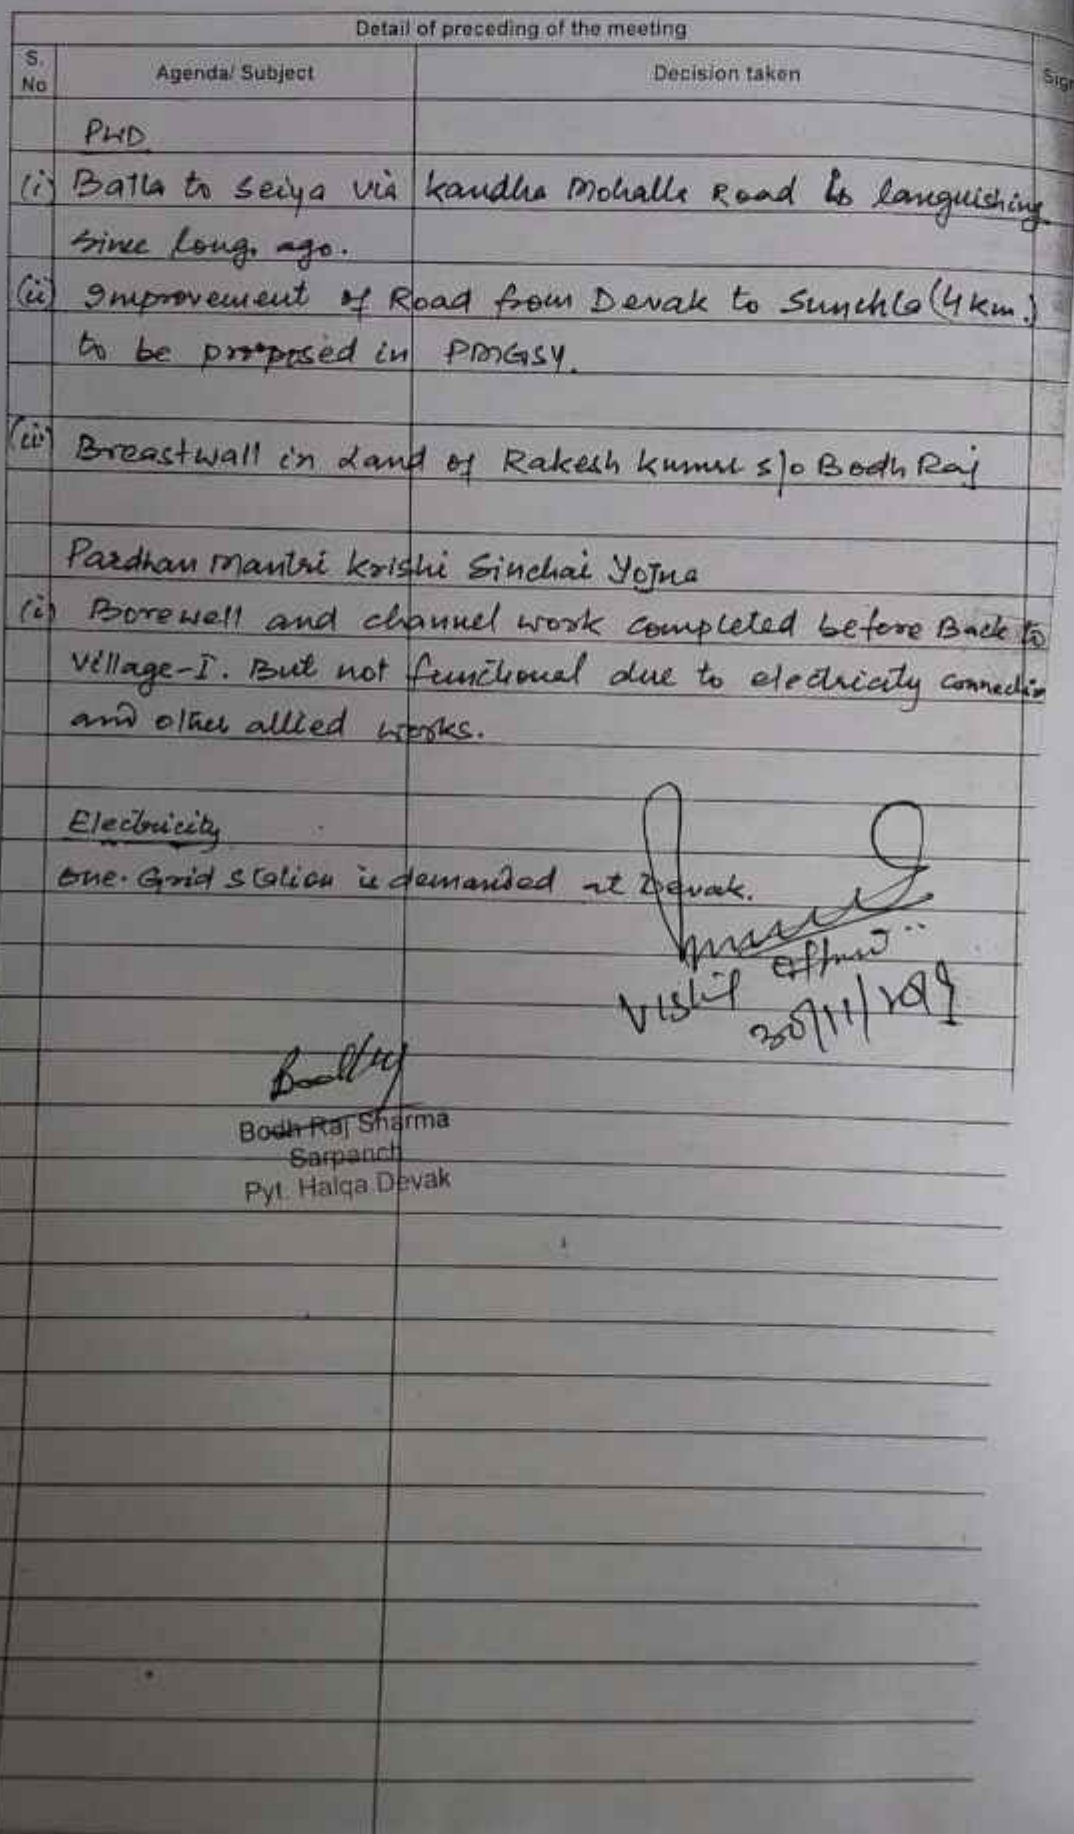 Detail of preceding of the meeting
S. No
Agenda/ Subject
Decision taken
Sign
PWD
(i) Balla to Seiya via kandha Mohalla Road is languishing
since long. ago.
(ii) Improvement of Road from Devak to Sunchla (4 km.)
to be proposed in PMGSY.
(iii) Breastwall in Land of Rakesh Kumar s/o Bodh Raj
Pardhan Mantri Krishi Sinchai Yojna
(i) Borewell and channel work completed before Back to
village-I. But not functional due to electricity connection
and other allied works.
Electricity
One. Grid station is demanded at Devak.
Visiting Officer
30/11/2019
Bodh Raj Sharma
Sarpanch
Pyt. Halqa Devak